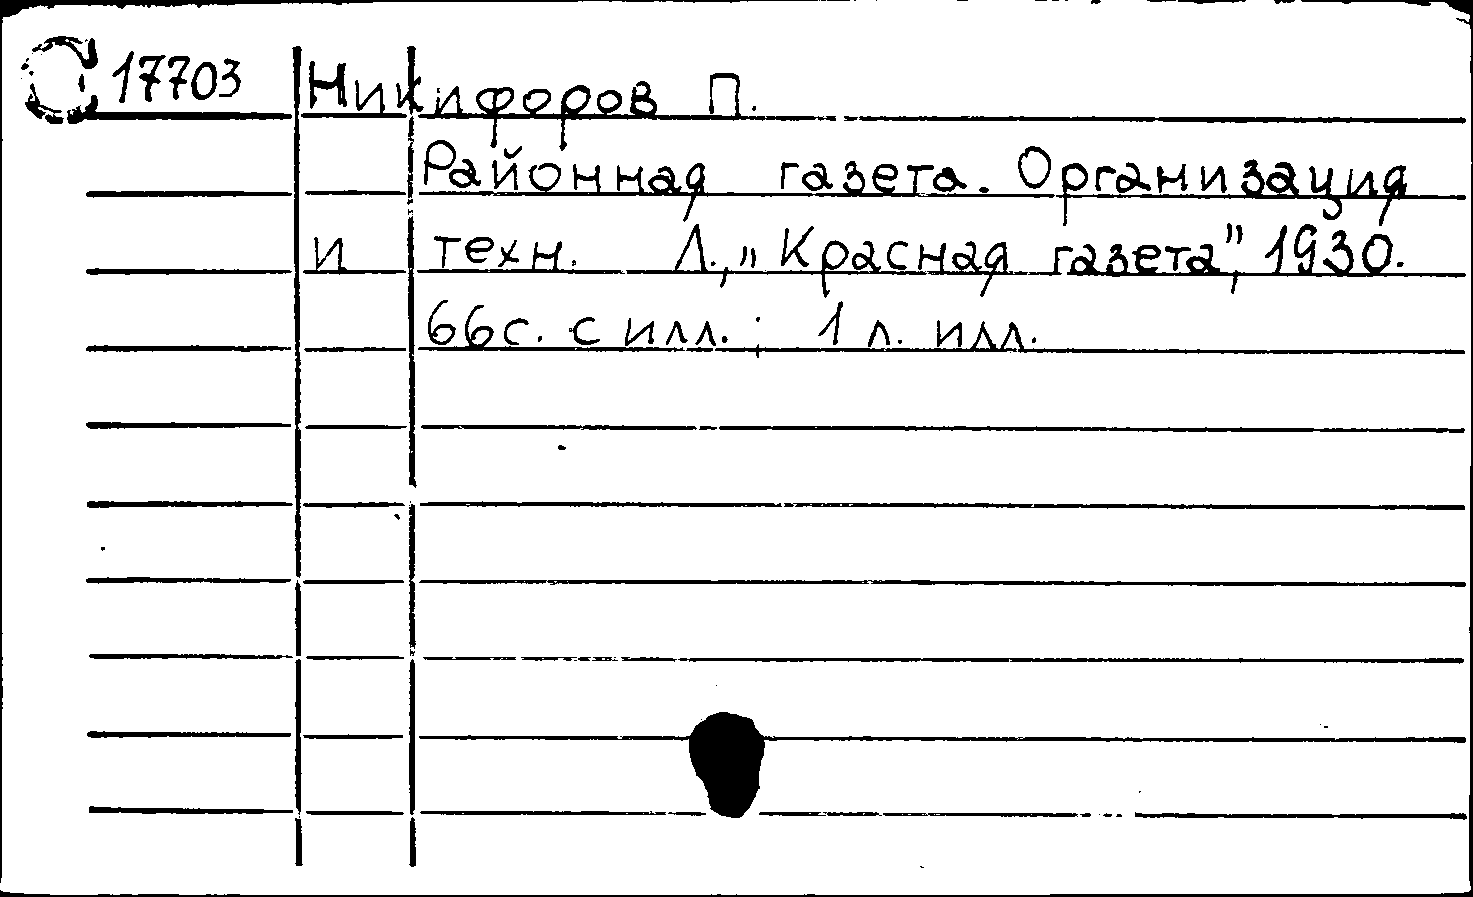 17703 Никифоров П.
Районная газета. Организация
и техн. Л., „Красная газета”, 1930.
66с. с илл.; 1 л. илл.